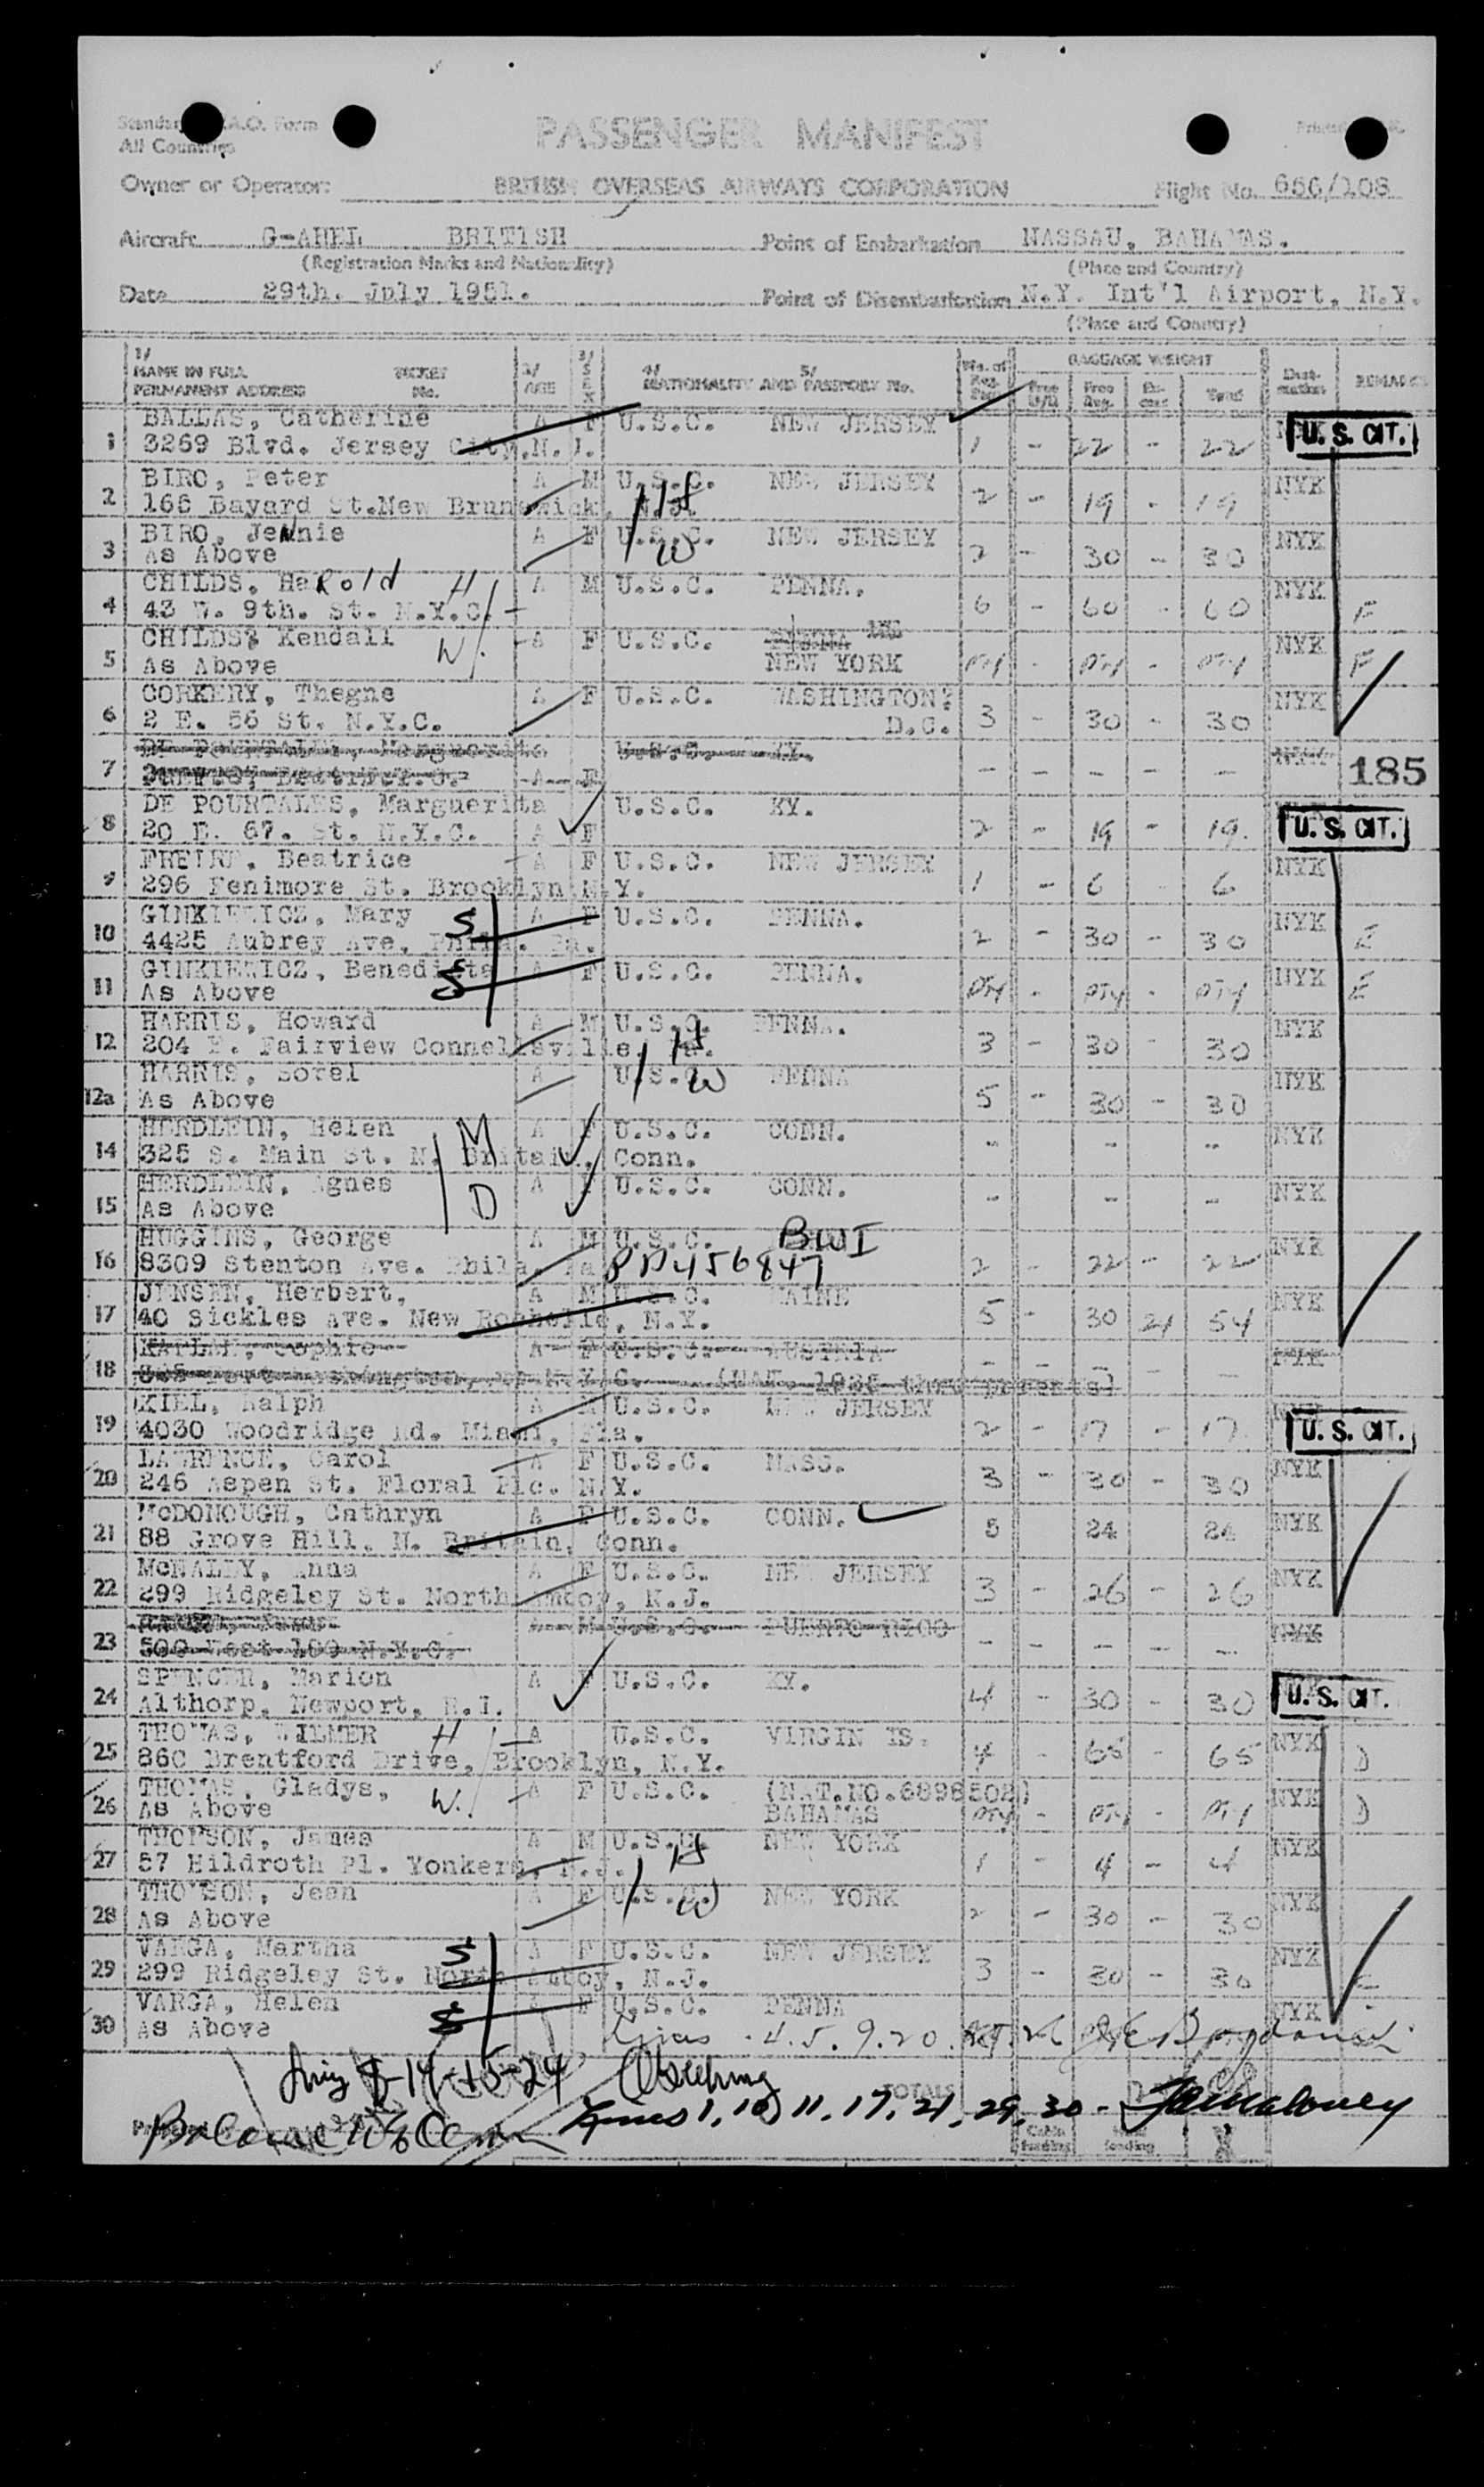 All Countries
PASSENGER MANIFEST
Owner or Operator: BRITISH OVERSEAS AIRWAYS CORPORATION Flight No.
Aircraft BRITISH Point of Embarkation NASSAU, BAHAMAS.
(Registration Marks and Nationality) (Place and Country)
Date 29th. July 1951. Point of Disembarkation N.Y. Int'l Airport, N.Y.
(Place and Country)
1/ 2/ 3/ 4/ 5/ No. of BAGGAGE WEIGHT
NAME IN FULL TICKET AGE SEX NATIONALITY AND PASSPORT No. Free Total Destination REMARKS
PERMANENT ADDRESS No.
BALLAS, Catherine A F U.S.C. NEW JERSEY U.S. CIT.
1 3269 Blvd. Jersey City, N.J. 1 - 22 - 22
BIRO, Peter A M U.S.C. NEW JERSEY NYK
2 165 Bayard St. New Brunswick, H 2 - 19 - 19
BIRO, Jennie A F U.S.C. NEW JERSEY NYK
3 As Above W 2 - 30 - 30
CHILDS, Harold H A M U.S.C. PENNA. NYK
4 43 W. 9th. St. N.Y.C. 6 - 60 - 60 F
CHILDS, Kendall W. A F U.S.C. NYK
5 As Above NEW YORK PTY - PTY - PTY F
CORKERY, Thegne A F U.S.C. WASHINGTON, NYK
6 2 E. 56 St. N.Y.C. D.C. 3 - 30 - 30
Marguerite U.S.C. KY.
7 A F - - - - - 185
DE POURTALES, Marguerita U.S.C. KY.
8 20 E. 67. St. N.Y.C. A F 2 - 19 - 19. U.S. CIT.
FREIRE, Beatrice A F U.S.C. NEW JERSEY NYK
9 296 Fenimore St. Brooklyn N.Y. 1 - 6 6
GINKIEWICZ, Mary S A F U.S.C. PENNA. NYK
10 4425 Aubrey Ave, Phila. Pa. 2 - 30 - 30 E
GINKIEWICZ, Benedicta S A F U.S.C. PENNA. NYK
11 As Above PTY - PTY - PTY E
HARRIS, Howard A M U.S.C. PENNA. NYK
12 204 E. Fairview Connellsville, Pa. H 3 - 30 - 30
HARRIS, Sorel A U.S. W PENNA NYK
12a As Above 5 - 30 - 30
HERDLEIN, Helen M A F U.S.C. CONN. NYK
14 325 S. Main St. N. Britain, Conn. - - -
HERDLEIN, Agnes D A F U.S.C. CONN. NYK
15 As Above - - -
HUGGINS, George A M U.S.C. BWI NYK
16 8309 Stenton Ave. Phila. Pa PP456847 2 - 22 - 22
JENSEN, Herbert, A M U.S.C. MAINE NYK
17 40 Sickles Ave. New Rochelle, N.Y. 5 - 30 24 54
Sophie A F U.S.C. AUSTRIA NYK
18 - - - - -
KIEL, Ralph A M U.S.C. NEW JERSEY
19 4030 Woodridge Rd. Miami, Fla. 2 - 17 - 17 U.S. CIT.
LAWRENCE, Carol A F U.S.C. MASS. NYK
20 246 Aspen St. Floral Plc. N.Y. 3 - 30 - 30
McDONOUGH, Cathryn A F U.S.C. CONN. NYK
21 88 Grove Hill, N. Britain, Conn. 5 24 24
McNALLY, Anna A F U.S.C. NEW JERSEY NYK
22 299 Ridgeley St. North Amboy, N.J. 3 - 26 - 26
A M U.S.C. PUERTO RICO NYK
23 N.Y.C. - - - - -
SPENCER, Marion A F U.S.C. KY.
24 Althorp, Newport, R.I. 4 - 30 - 30 U.S. CIT.
THOMAS, WILMER H A U.S.C. VIRGIN IS. NYK
25 860 Brentford Drive, Brooklyn, N.Y. 4 - 65 - 65 D
THOMAS, Gladys, W. A F U.S.C. (NAT.NO.6898502) NYK
26 As Above BAHAMAS PTY - PTY - PTY D
THOMSON, James A M U.S.C. NEW YORK NYK
27 57 Hildroth Pl. Yonkers, H 1 - 4 - 4
THOMSON, Jean A F U.S.C. W NEW YORK NYK
28 As Above 2 - 30 - 30
VARGA, Martha S A F U.S.C. NEW JERSEY NYK
29 299 Ridgeley St. North Amboy, N.J. 3 - 30 - 30
VARGA, Helen S A F U.S.C. PENNA NYK
30 As Above 4. 5. 9. 20.
14-15-24
TOTALS
Lines 1, 10, 11, 17, 21, 29, 30 -